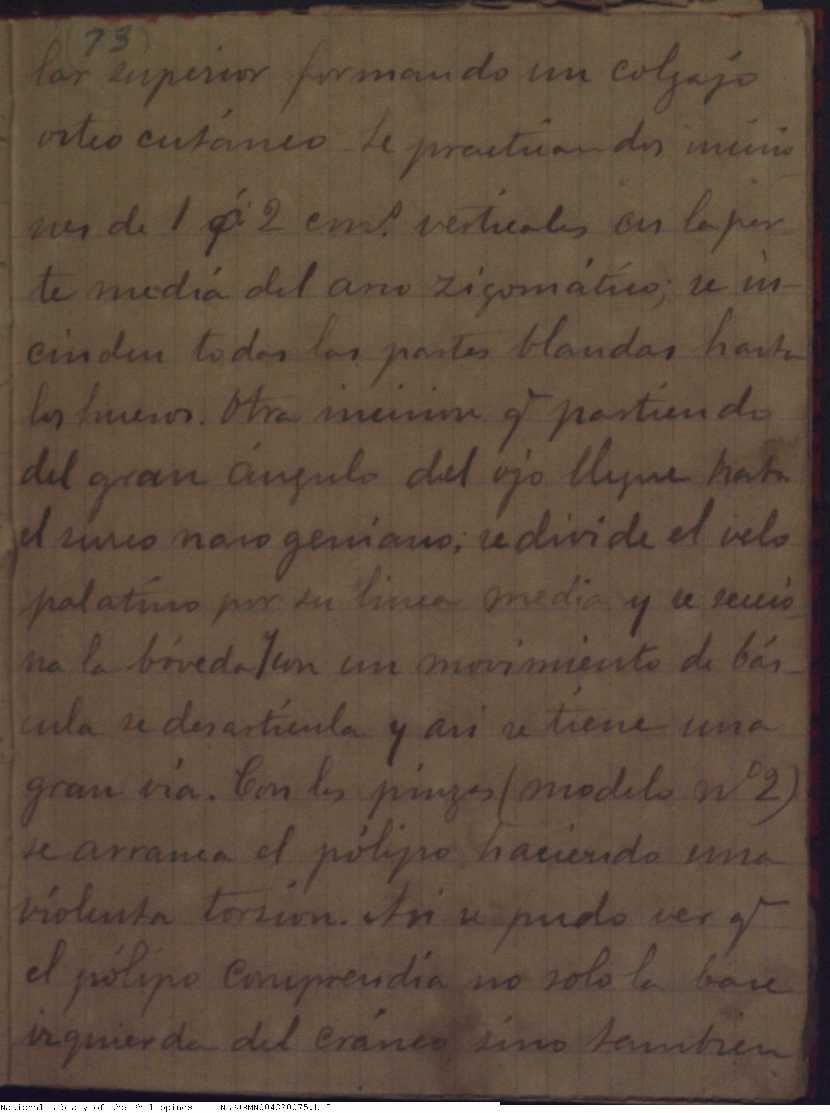 73
lar superior formando un colgajo
osteo cutáneo. Se practican dos incisio
nes de 1 á 2 cms. verticales en la par
te mediá del arco zigomático; se in-
cinden todas las partes blandas hasta
los huesos. Otra incision q partiendo
del gran ángulo del ojo llegue hasta
el surco naso geniano; se divide el velo
palatino por su linea media y se seccio
na la bóveda y con un movimiento de bás-
cula se desartícula y asi se tiene una
gran vía. Con las pinzas (modelo nº 2)
se arranca el pólipo haciendo una
violenta torsion. Asi se pudo ver q
el pólipo comprendia no solo la base
izquierda del cráneo sino tambien
National Library of the Philippines